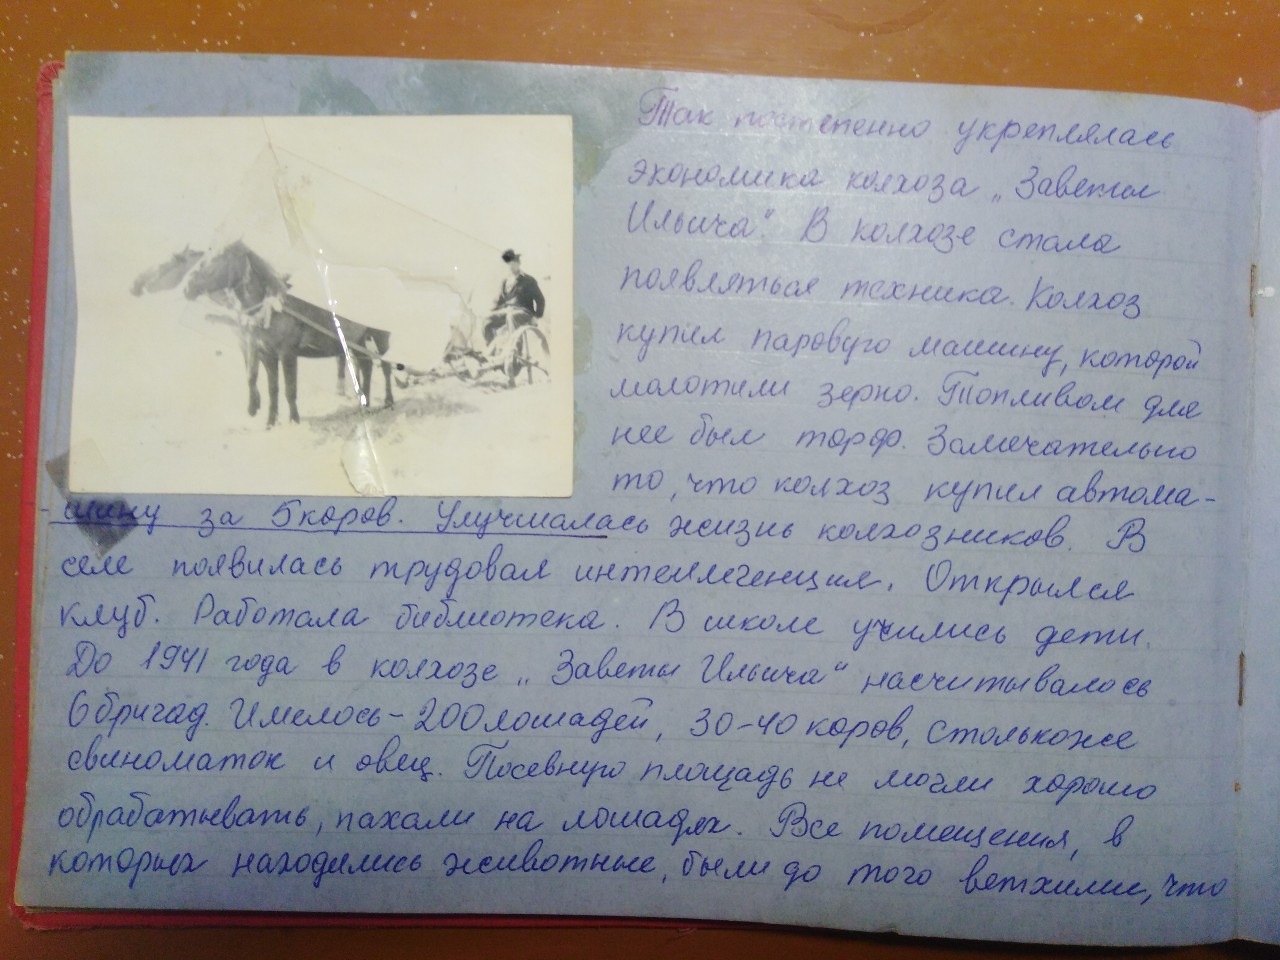 Так постепенно укреплялась
экономика колхоза „Заветы
Ильича“. В колхозе стала
появляться техника. Колхоз
купил паровую машину, которой
молотили зерно. Топливом для
нее был торф. Замечательно
то, что колхоз купил автома-
шину за 5 коров. Улучшалась жизнь колхозников. В
селе появилась трудовая интеллегенция. Открылся
клуб. Работала библиотека. В школе учились дети.
До 1941 года в колхозе „Заветы Ильича“ насчитывалось
6 бригад. Имелось - 200 лошадей, 30-40 коров, столькоже
свиноматок и овец. Посевную площадь не могли хорошо
обрабатывать, пахали на лошадях. Все помещения, в
которых находились животные, были до того ветхими, что